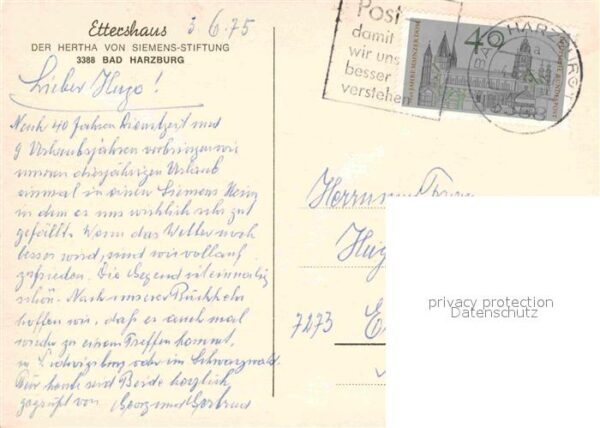 Ettershaus 3.6.75
DER HERTHA VON SIEMENS-STIFTUNG
3388 BAD HARZBURG
Lieber Hugo!
Nach 40 Jahren Dienstzeit und
9 Urlaubsjahren verbringen wir
unseren diesjährigen Urlaub
einmal in einem Siemens Heim
in dem es uns wirklich sehr gut
gefällt. Wenn das Wetter noch
besser wird, sind wir vollauf
zufrieden. Die Gegend ist einmalig
schön. Nach unserer Rückkehr
hoffen wir, daß es auch mal
wieder zu einem Treffen kommt,
in Ludwigsburg oder im Schwarzwald.
Für heute seid Beide herzlich
gegrüßt von Georg und Gertrud
Post
damit
wir uns
besser
verstehen
40
BAD HARZBURG
3388
Herrn u. Frau
7273
privacy protection
Datenschutz